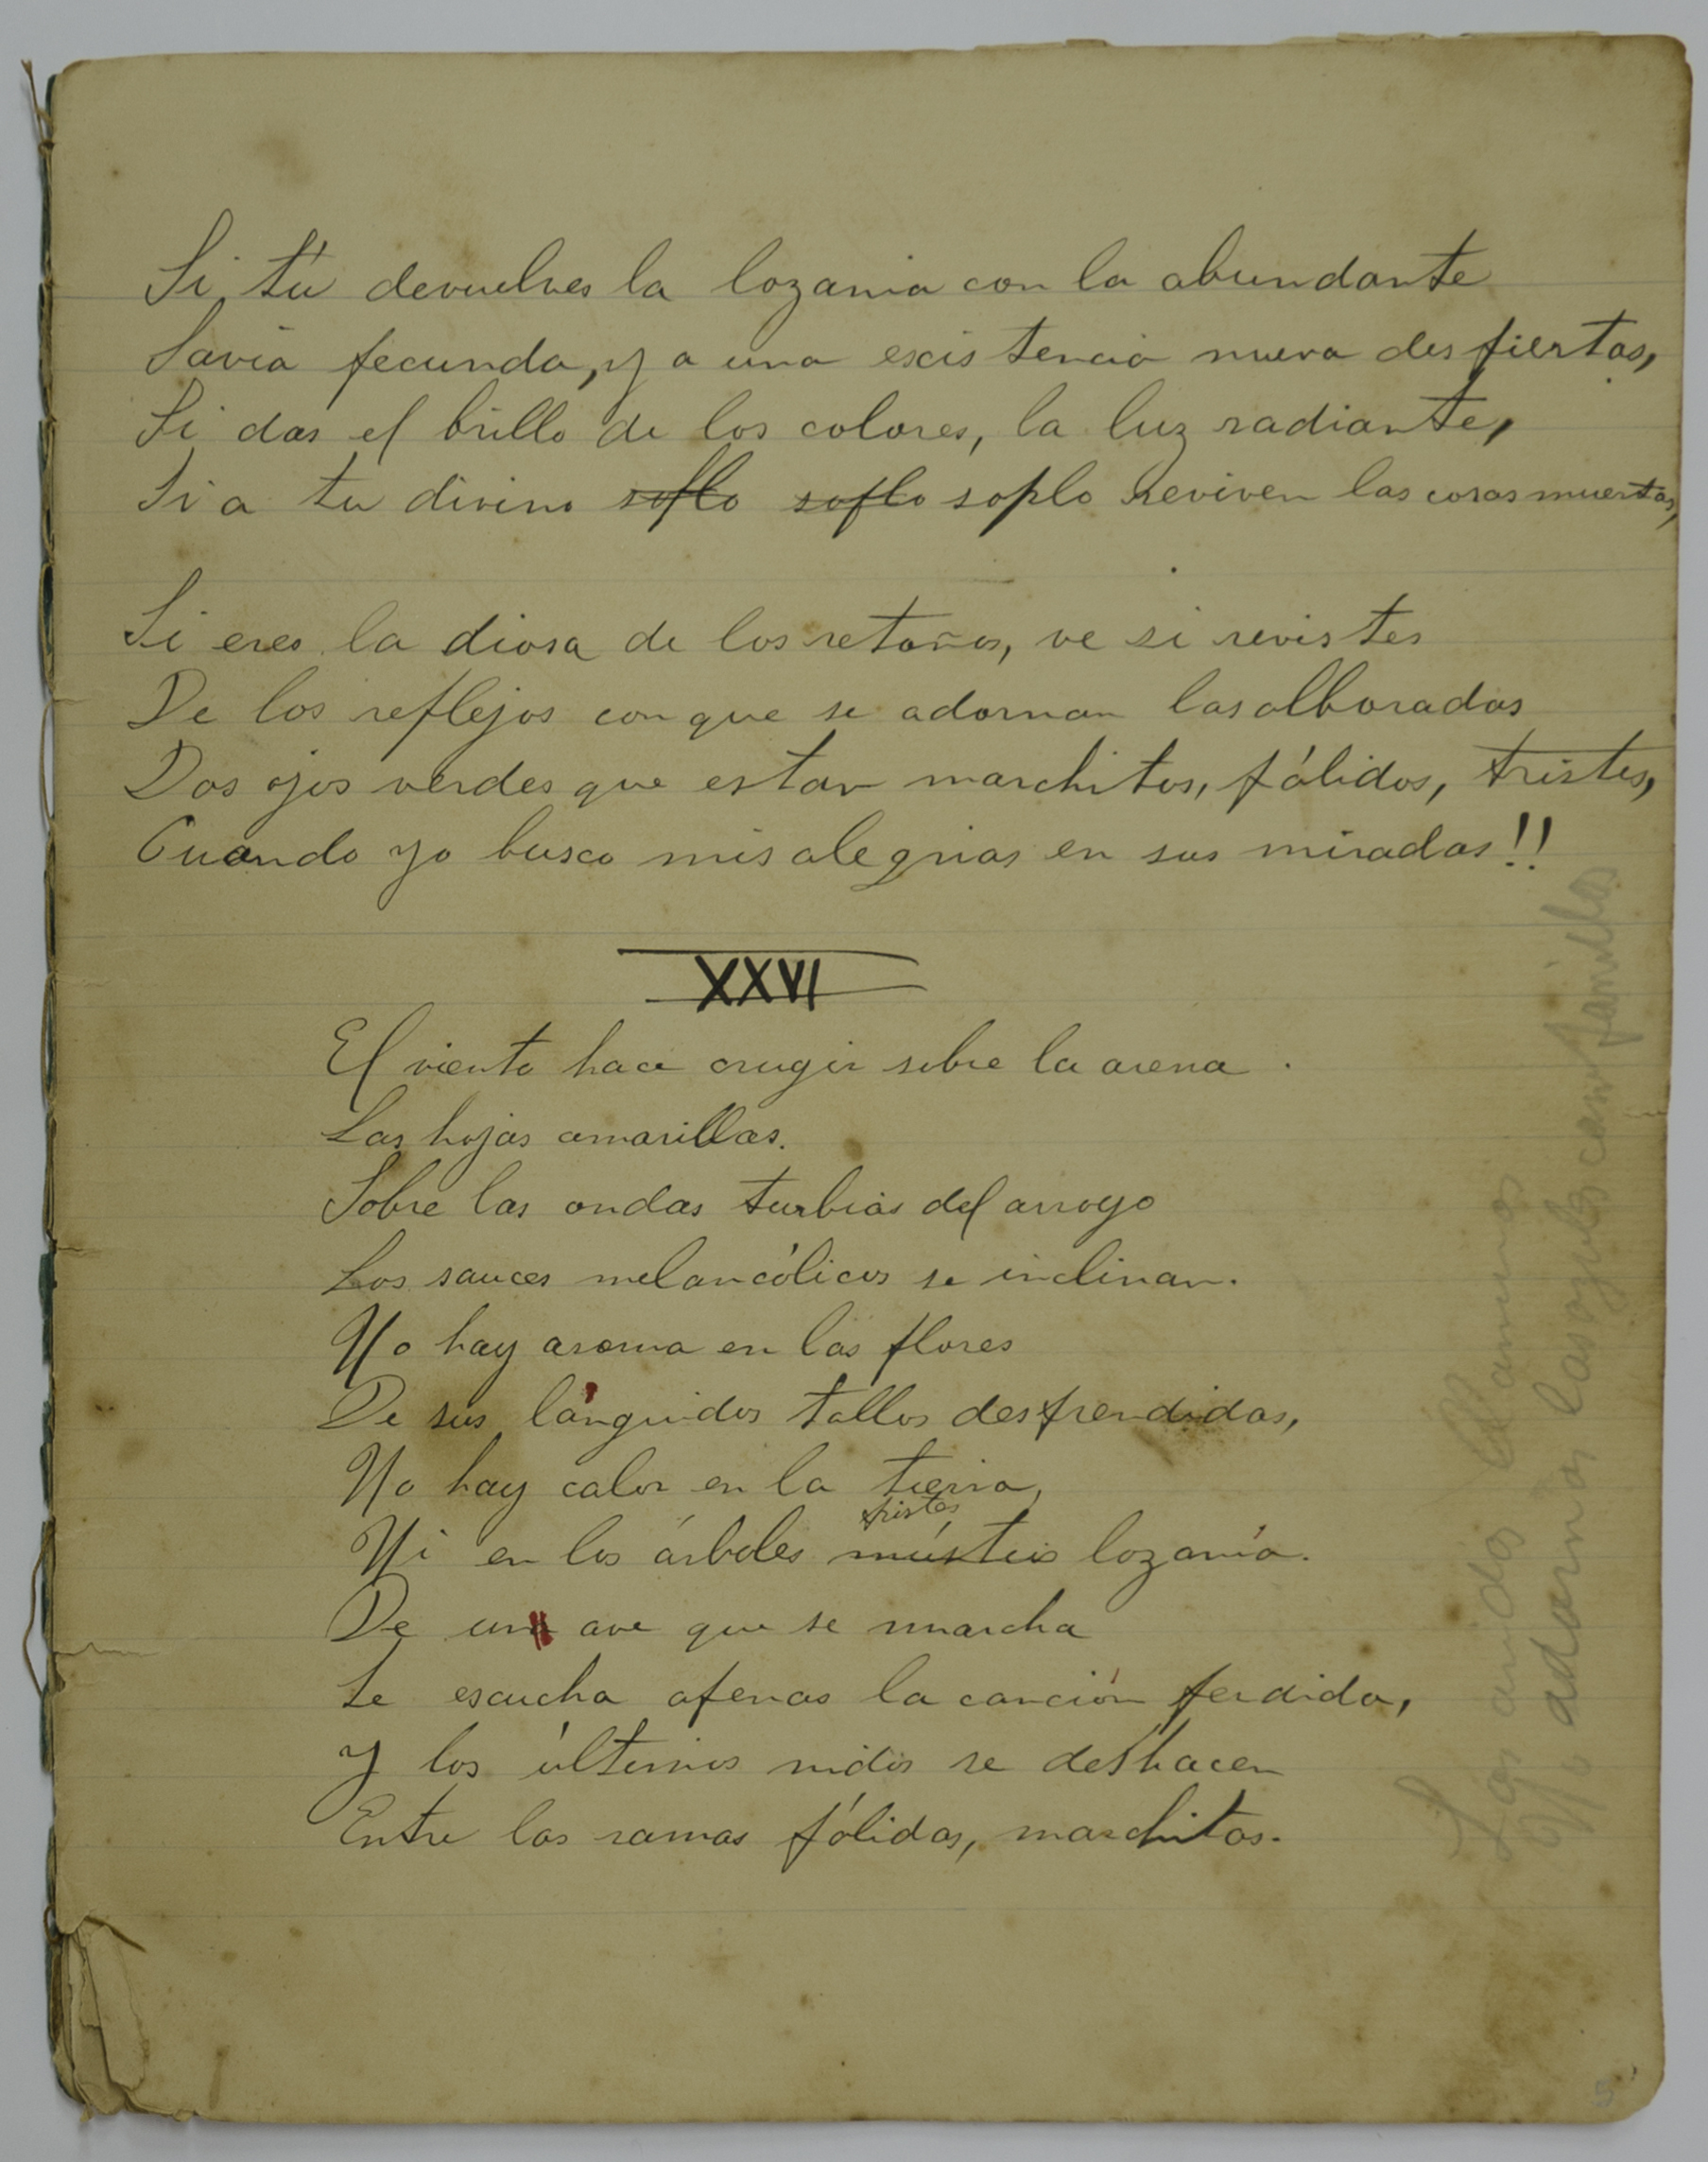 Si tú devuelves la lozania con la abundante
Savia fecunda, y a una excistencia nueva despiertas,
Si das el brillo de los colores, la luz radiante,
Si a tu divino soplo soplo soplo reviven las cosas muertas,
Si eres la diosa de los retoños, ve si revistes
De los reflejos con que se adornan las alboradas
Dos ojos verdes que estan marchitos, pálidos, tristes,
Cuando yo busco mis alegrias en sus miradas!!
XXVI
El viento hace crugir sobre la arena
Las hojas amarillas.
Sobre las ondas turbias del arroyo
Los sauces melancólicos se inclinan.
No hay aroma en las flores
De sus lánguidos tallos desprendidas,
No hay calor en la tierra,
tristes
Ni en los árboles mústios lozanía.
De un ave que se marcha
Se escucha apenas la canción perdida,
Y los últimos nidos se deshacen
Entre las ramas pálidas, marchitas.
Los aridos caminos
No adornan las azules campanillas
5